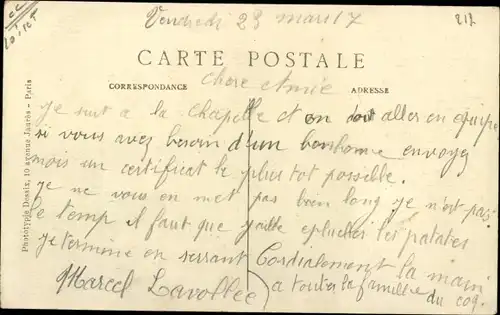 Vendredi 23 mars 17
212
Loiret
CARTE POSTALE
CORRESPONDANCE
ADRESSE
chere Amie
je suit a la chapelle et on doit aller en equipe
si vous avez besoin d'un bonhome envoyez
mois un certificat le plus tot possille.
je ne vous en met pas bien long je n'est pas
le temp il faut que j'aille eplucher les patates
je termine en serrant Cordialement la main
a toute la famille du coq.
Marcel Lavollée
Phototypie Desaix, 10 avenue Jaurès - Paris